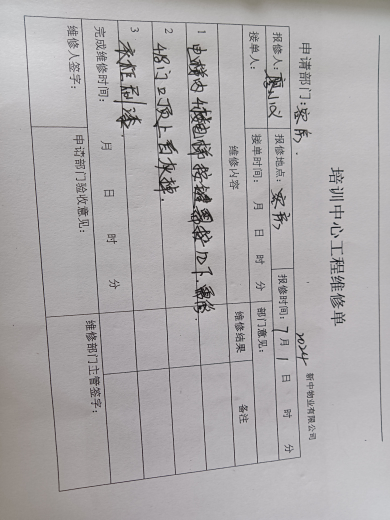 培训中心工程维修单
2024 新中物业有限公司
申请部门：客房.
报修人： 报修地点：客房 报修时间：7月1日 时 分
接单人： 接单时间： 月 日 时 分 部门意见：
维修内容 维修结果 备注
1 电梯内4楼电梯按键 下，需修.
2 4门口顶上有灰掉.
3 衣柜刷漆.
完成维修时间： 月 日 时 分
维修人签字： 申请部门验收意见： 维修部门主管签字：